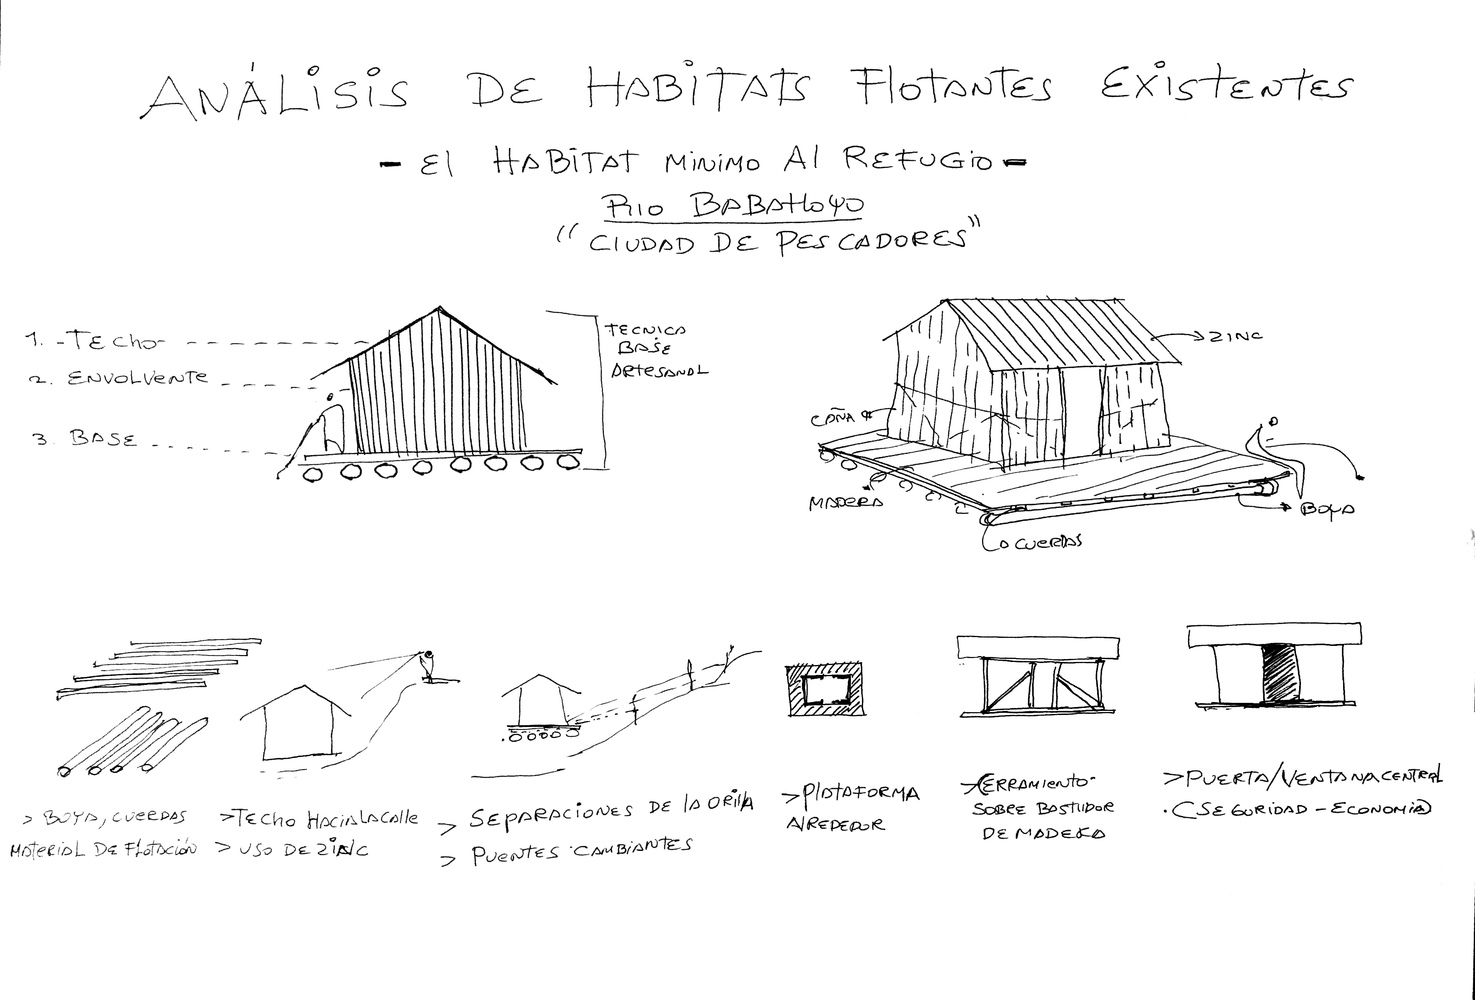 ANÁLISIS DE HABITATS FLOTANTES EXISTENTES
- El HABITAT MINIMO Al REFUGIO -
RIO BABAHOYO
"CIUDAD DE PESCADORES"
1. - TECHO -
2. ENVOLVENTE
3. BASE
TECNICA
BASE
ARTESANAL
ZINC
CAÑA
MADERA
CUERDAS
BOYA
> BOYA, CUERDAS
MATERIAL DE FLOTACIÓN
> TECHO HACIA LA CALLE
> USO DE ZINC
> SEPARACIONES DE LA ORILLA
> PUENTES CAMBIANTES
> PLATAFORMA
ALREDEDOR
> CERRAMIENTO
SOBRE BASTIDOR
DE MADERA
> PUERTA/VENTANA CENTRAL
. (SEGURIDAD - ECONOMIA)